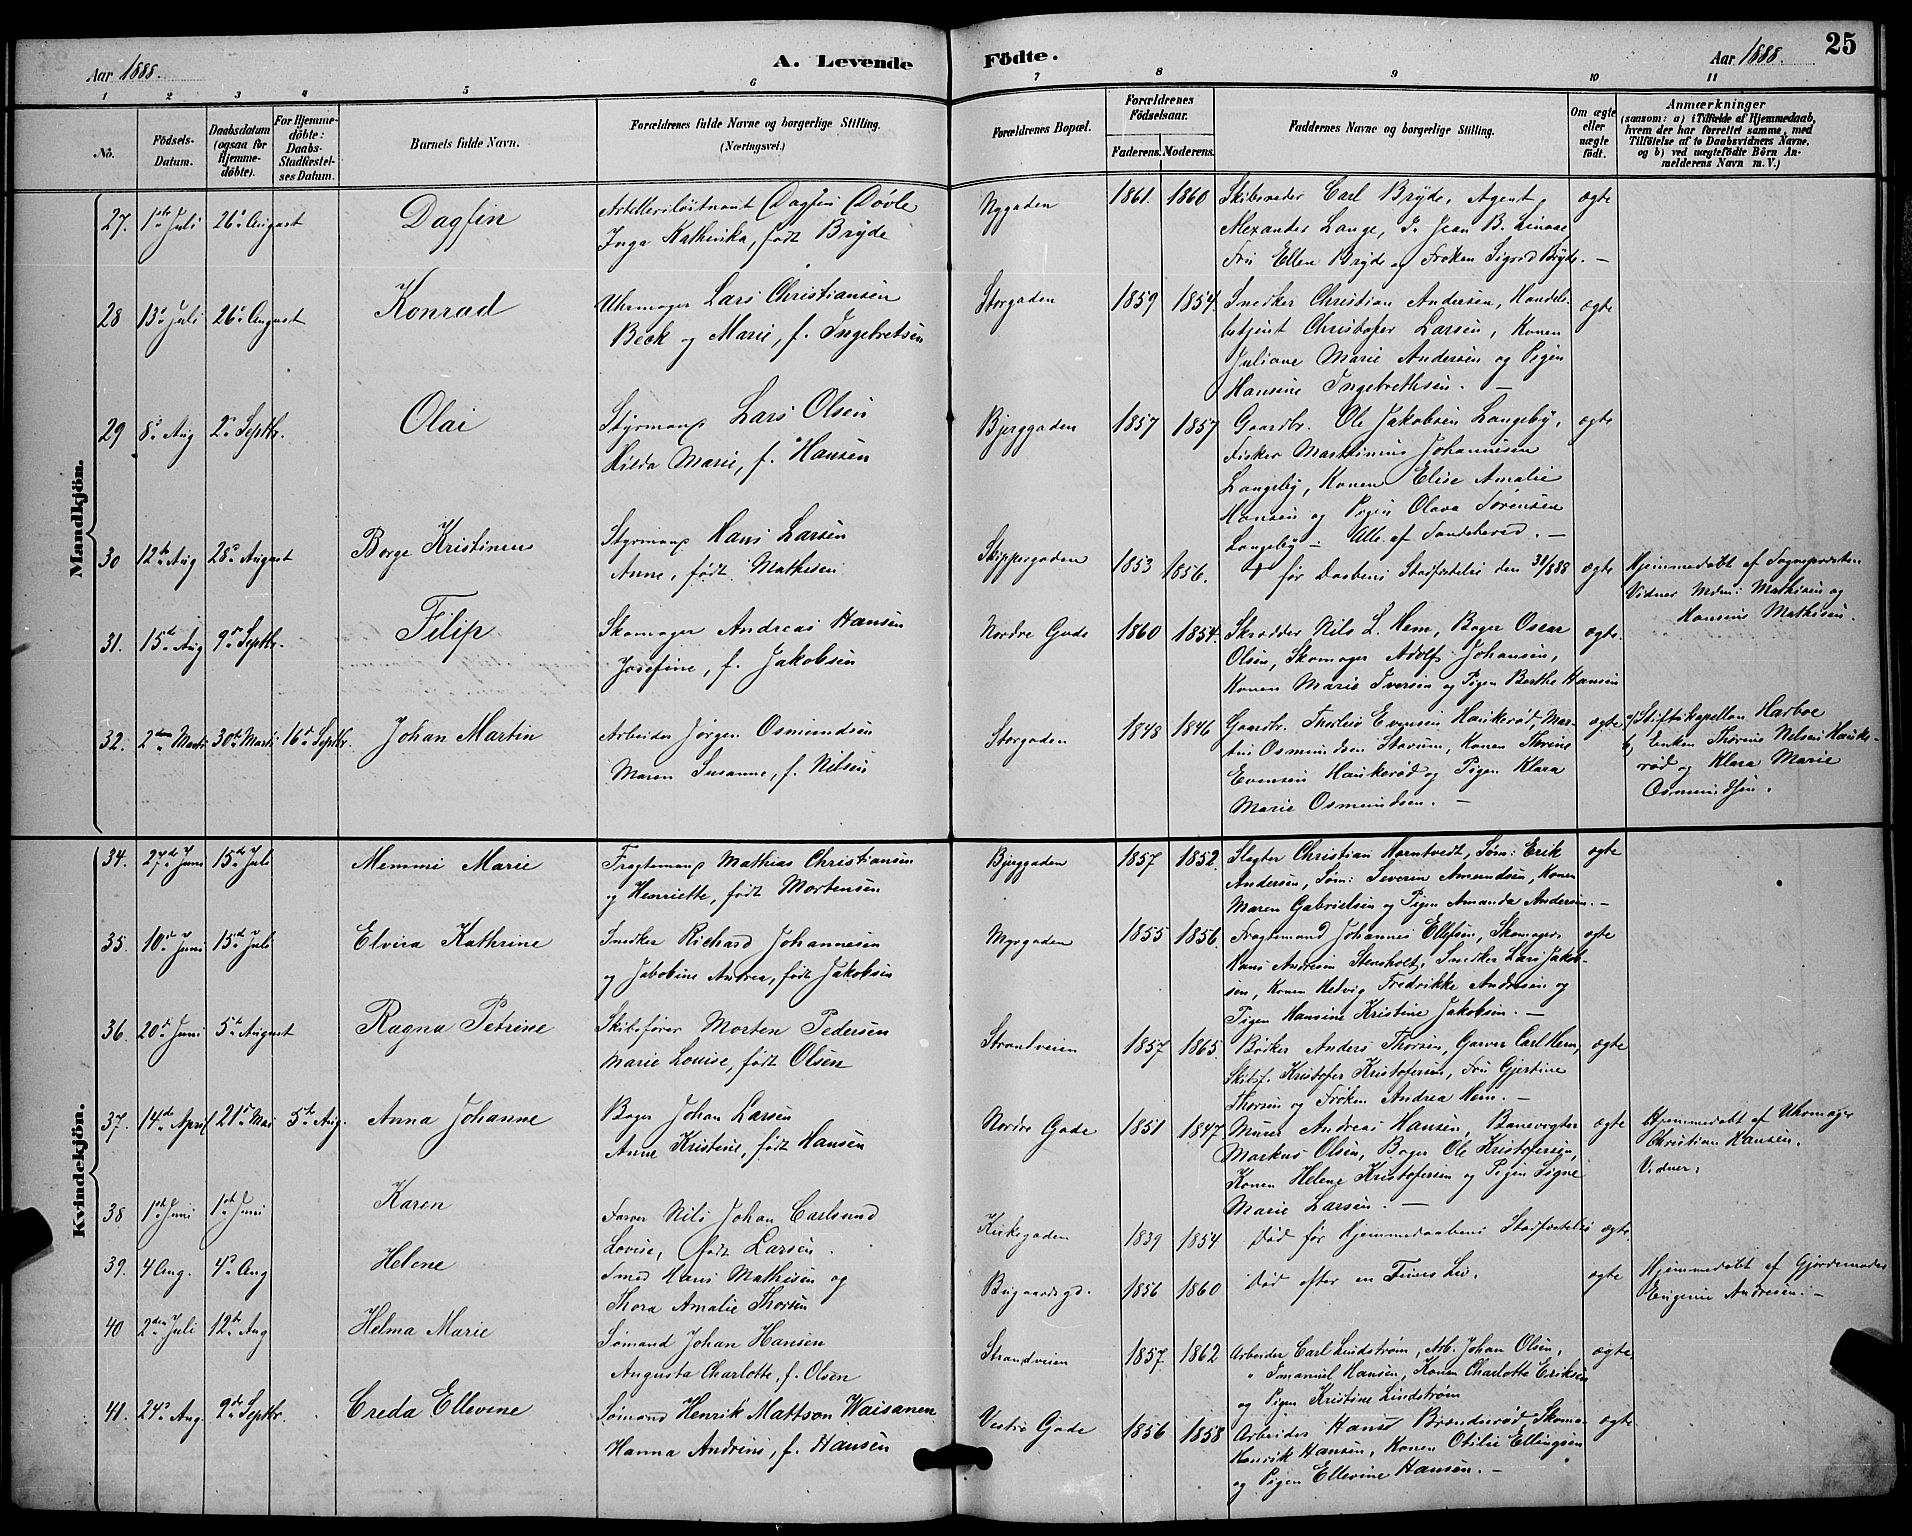 Aar 1888. A. Levende
Födte. Aar 1888. 25
1 2 3 4 5 6 7 8 9 10 11
No.
Födsels-
Datum.
Daabsdatum
(ogsaa for
Hjemme-
döbte).
For Hjemme-
döbte:
Daabs-
Stadfæstel-
ses Datum.
Barnets fulde Navn.
Forældrenes fulde Navne og borgerlige Stilling.
(Næringsvei.)
Forældrenes Bopæl.
Forældrenes
Födselsaar.
Faderens. Moderens.
Faddernes Navne og borgerlige Stilling.
Om ægte
eller
uægte
födt.
Anmærkninger
(saasom: a) i Tilfælde af Hjemmedaab,
hvem der har forrettet samme, med
Tilföielse af to Daabsvidners Navne,
og b) ved uægtefödte Börn An-
melderens Navn m. V.)
Mandkjön.
27. 1de Juli 26. August Dagfin
Artilleriløitnant Dagfin Døvle
Inga Kathinka, født Bryde
Nygaden 1861. 1860
Skibsreder Carl Bryde, Agent
Alexander Lange, Jean B. Linaae
Fru Ellen Bryde og Frøken Sigrid Bryde. —
ægte
28 13. Juli 26. August Konrad
Uhrmager Lars Christiansen
Beck og Marie, f. Ingebretsen
Storgaden 1859 1854.
Snedker Christian Andersen, Handels-
betjent Christofer Larsen, Konen
Juliane Marie Andersen og Pigen
Hansine Ingebrethsen. —
ægte
29 8. Aug 2. Septbr. Olai
Styrmand Lars Olsen
Hilda Marie, f. Hansen
Bjerggaden 1857 1857
Gaardbr. Ole Jakobsen Langeby,
Fisker Marthinius Johannesen
Langeby, Konen Elise Amalie
Hansen og Pigen Olava Sørensen
Langeby — Alle af Sandeherred. —
ægte
30 12te Aug 28. August Borge Kristinen
Styrmand Hans Larsen
Anne, født Mathisen
Skippergaden 1853 1856.
† før Daabens Stadfæstelse den 31/8 88 ægte
Hjemmedøbt af Sognepræsten
Vidner Mdm: Mathisen og
Hansine Mathisen.
31. 15de Aug 9de Septbr. Filip
Skomager Andreas Hansen
Josefine, f. Jakobsen
Nordre Gade 1860 1854.
Skrædder Nils L. Hem, Bager Oscar
Olsen, Skomager Adolf Johansen,
Konen Marie Iversen og Pigen Berthe Hansen
ægte.
32. 2den Marts 30te Marts 16de Septbr. Johan Martin
Arbeider Jørgen Osmundsen
Maren Susanne, f. Nilsen
Storgaden 1848 1846
Gaardbr. Thorlers Evensen Haukerød, Mar-
tin Osmundsen Storum, Konen Thorine
Evensen Haukerød og Pigen Klara
Marie Osmundsen. —
ægte
a) Stiftskapellan Harboe
b) Enken Thorine Nilsen Hauke-
rød og Klara Marie
Osmundsen.
Kvindekjön.
34. 27de Juni 15de Juli Memmi Marie
Fragtemand Mathias Christiansen
og Henriette, født Mortensen
Bjerggaden 1857 1852.
Slagter Christian Horntvedt, Søm: Erik
Andersen, Søm: Severin Amundsen, Konen
Maren Gabrielsen og Pigen Amanda Andersen. —
ægte
35. 10de Juni 15de Juli Elvira Kathrine
Snedker Richard Johannesen
og Jabobine Andrea, født Jakobsen
Myrgaden 1855 1856.
Fragtemand Johannes Ellefsen, Skomager
Hans Andresen Stensholt, Snedker Lars Jakob-
sen, Konen Hedvig Fredrikke Andresen og
Pigen Hansine Kristine Jakobsen. —
ægte
36. 20de Juni 5te August Ragna Petrine
Skibsfører Morten Pedersen
Marie Louise, født Olsen
Strandveien 1857 1865.
Bødker Anders Thorsen, Garver Carl Hem,
Skibsf. Kristofer Kristofersen, Fru Gjertine
Thorsen og Frøken Andrea Hem. —
ægte
37. 14de April 21de Mai 5te Aug. Anna Johanne
Bager Johan Larsen
Anne Kristine, født Hansen
Nordre Gade 1851 1847
Murer Andreas Hansen, Banevogter
Markus Olsen, Bager Ole Kristofersen,
Konen Helene Kristofersen og Pigen Signe
Marie Larsen. —
ægte
Hjemmedøbt af Uhrmager
Christian Hansen.
Vidner:
38 1ste Juni 1ste Juni Karen
Farver Nils Johan Carlsund
Lovise, født Larsen.
Kirkegaden 1839 1854
Død før Hjemmedaabens Stadfæstelse ægte.
39. 4 Aug. 4. Aug Helene
Smed Hans Mathisen og
Thora Amalie Thorsen
Bugaardsgd. 1856 1860
Død efter en Times Liv.
ægte
Hjemmedøbt af Gjordemoder
Eugenie Andresen. —
40 2den Juli 12te Aug Helma Marie
Sømand Johan Hansen
Augusta Charlotte, f. Olsen
Strandveien 1857. 1862
Arbeider Carl Lindstrøm, Arb. Johan Olsen,
" Emanuel Hansen, Konen Charlotte Eriksen
og Pigen Kristine Lindstrøm
ægte.
41. 24. Aug 9de Septbr. Creda Ellevine
Sømand Henrik Mattson Waisanen
Hanna Andrine, f. Hansen
Vestre Gade 1856 1858
Arbeider Hans Brønderød, Skoma-
Henrik Hansen, Konen Otilie Ellingsen
og Pigen Ellevine Hansen. —
ægte